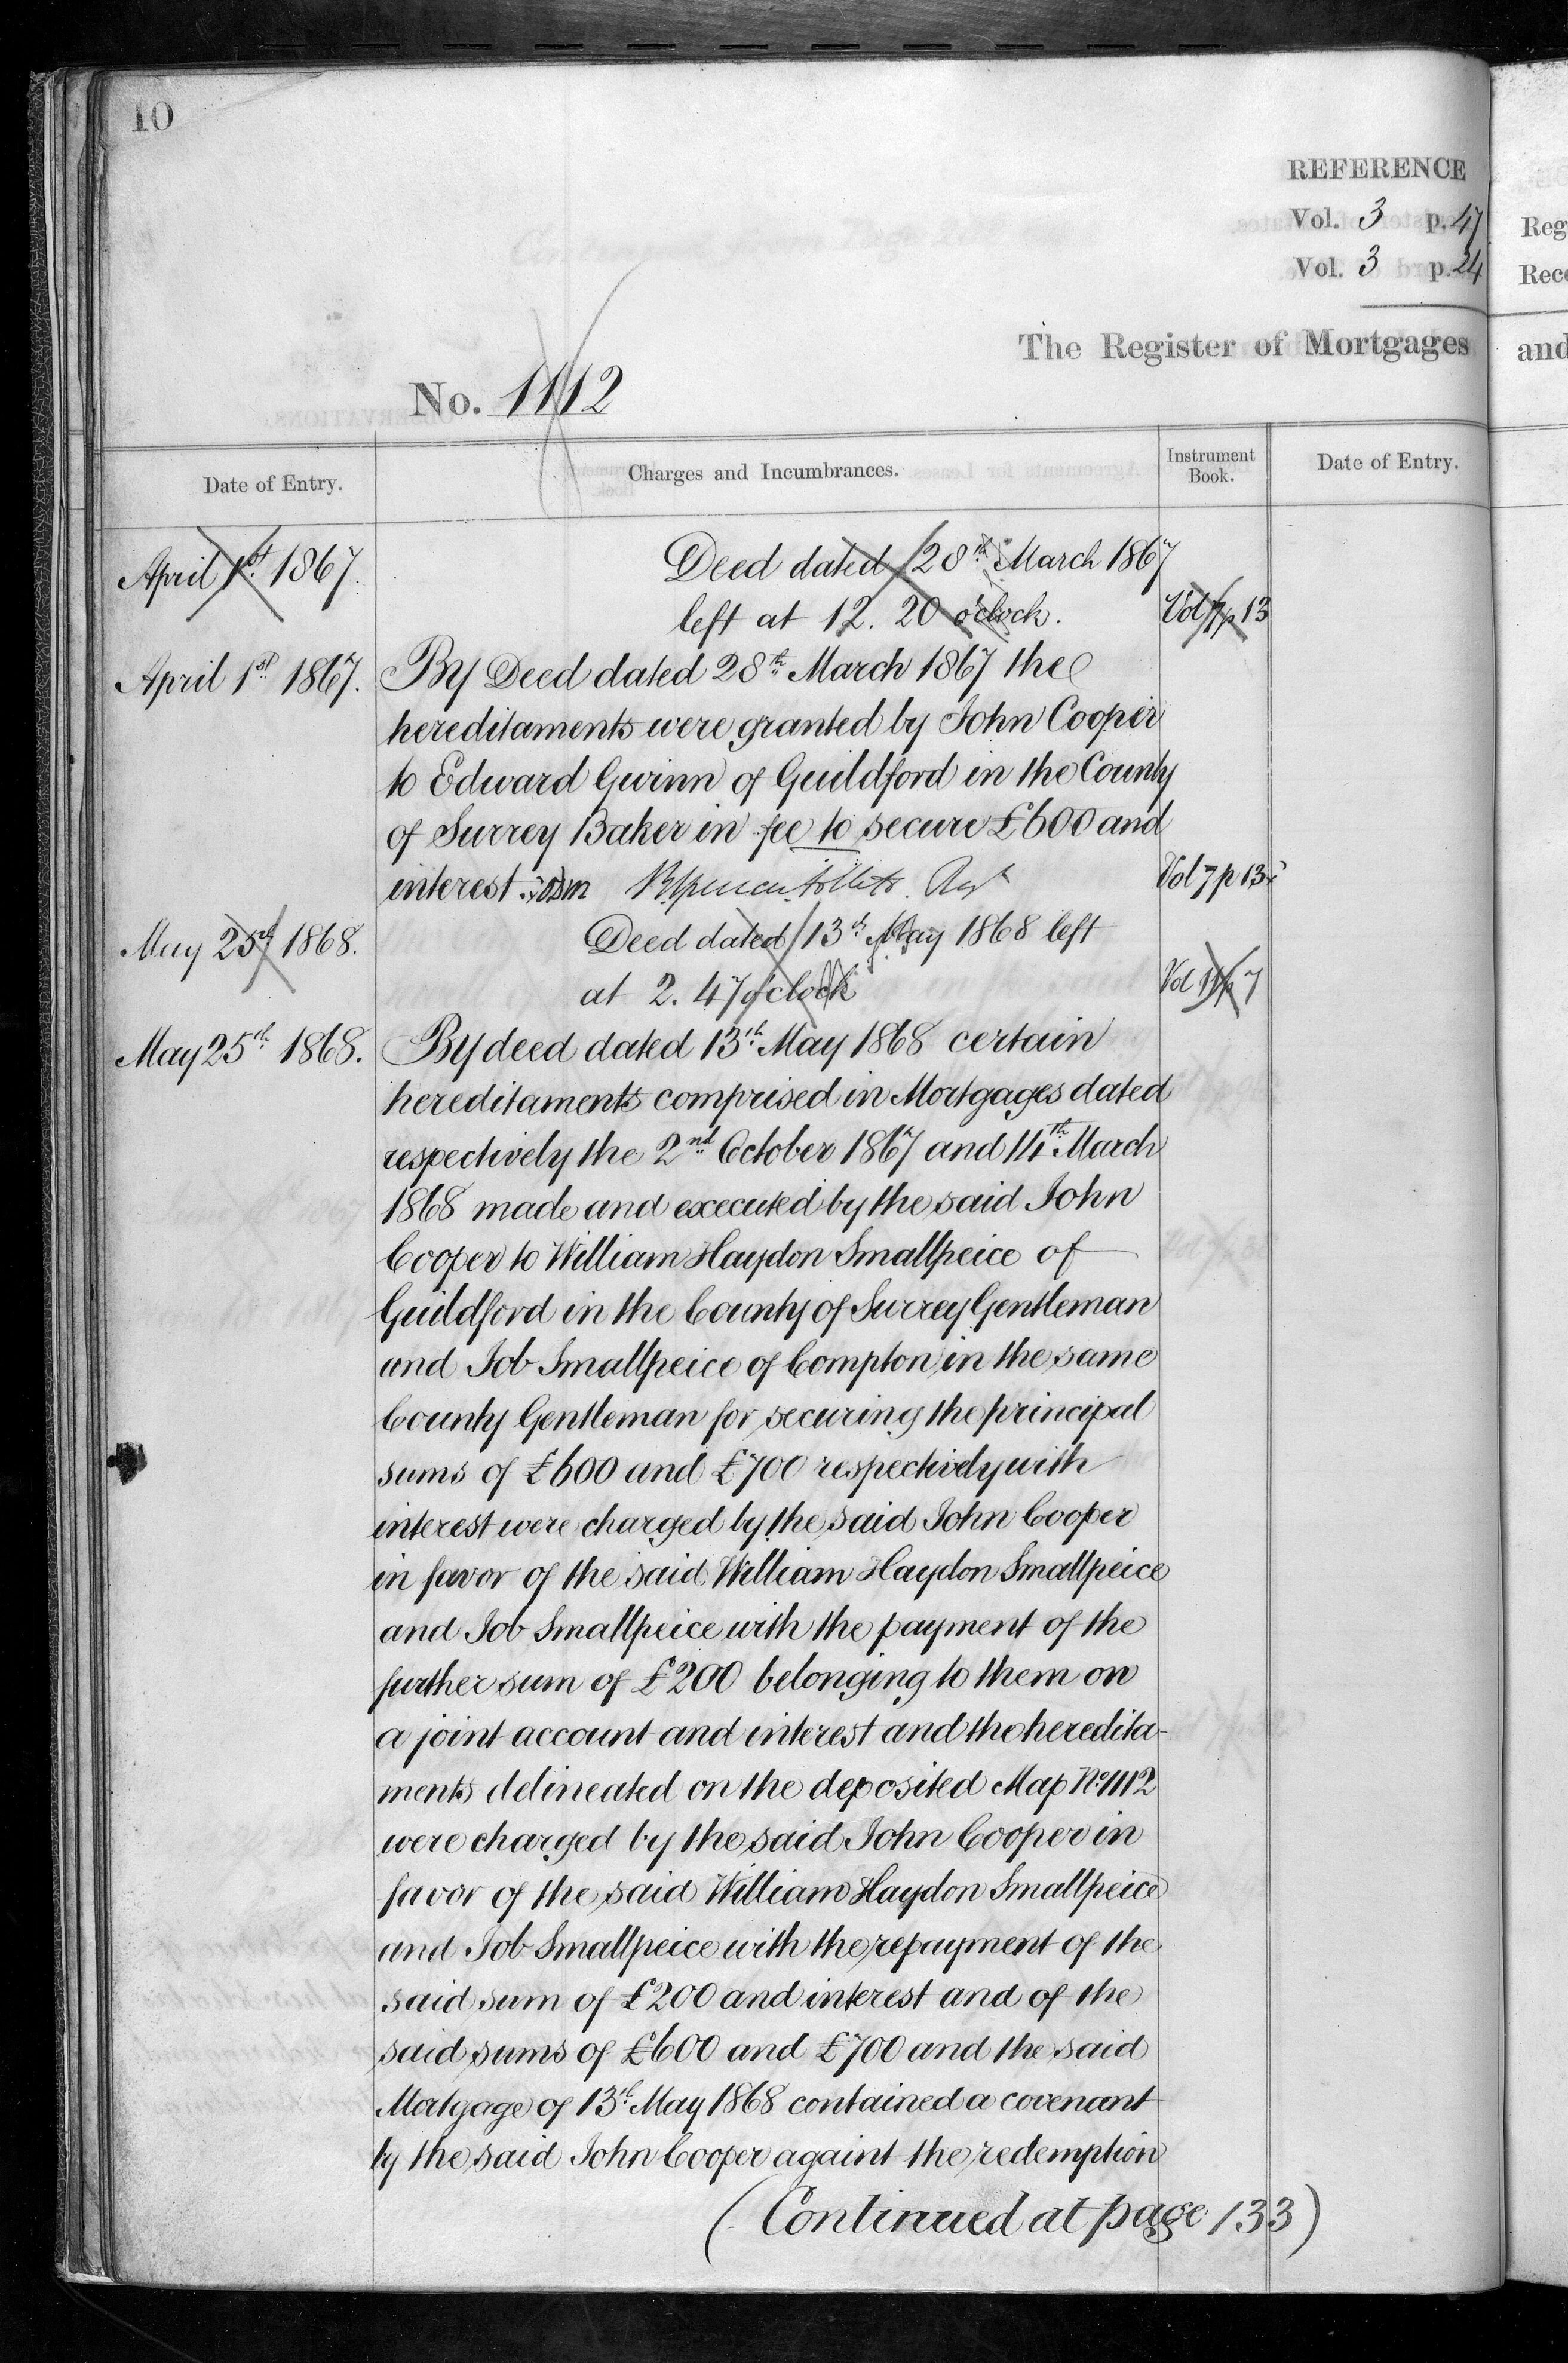 10
REFERENCE
Vol. 3 p. 47
Vol. 3 p. 24
Reg
Rece
The Register of Mortgages
and
No. 1112
Date of Entry.
Charges and Incumbrances.
Instrument Book.
Date of Entry.
April 1st 1867.
Deed dated 28th March 1867
left at 12. 20 o'clock.
Vol 7 p 13
April 1st 1867.
By Deed dated 28th March 1867 the
hereditaments were granted by John Cooper
to Edward Gwinn of Guildford in the County
of Surrey Baker in fee to secure £600 and
interest.
Vol 7 p 13
May 25th 1868.
Deed dated 13th May 1868 left
at 2. 47 o'clock
Vol 11 p 7
May 25th 1868.
By deed dated 13th May 1868 certain
hereditaments comprised in Mortgages dated
respectively the 2nd October 1867 and 14th March
1868 made and executed by the said John
Cooper to William Haydon Smallpeice of
Guildford in the County of Surrey Gentleman
and Job Smallpeice of Compton in the same
County Gentleman for securing the principal
sums of £600 and £700 respectively with
interest were charged by the said John Cooper
in favor of the said William Haydon Smallpeice
and Job Smallpeice with the payment of the
further sum of £200 belonging to them on
a joint account and interest and the heredita-
ments delineated on the deposited Map No. 1112
were charged by the said John Cooper in
favor of the said William Haydon Smallpeice
and Job Smallpeice with the repayment of the
said sum of £200 and interest and of the
said sums of £600 and £700 and the said
Mortgage of 13th May 1868 contained a covenant
by the said John Cooper againt the redemption
(Continued at page 133)